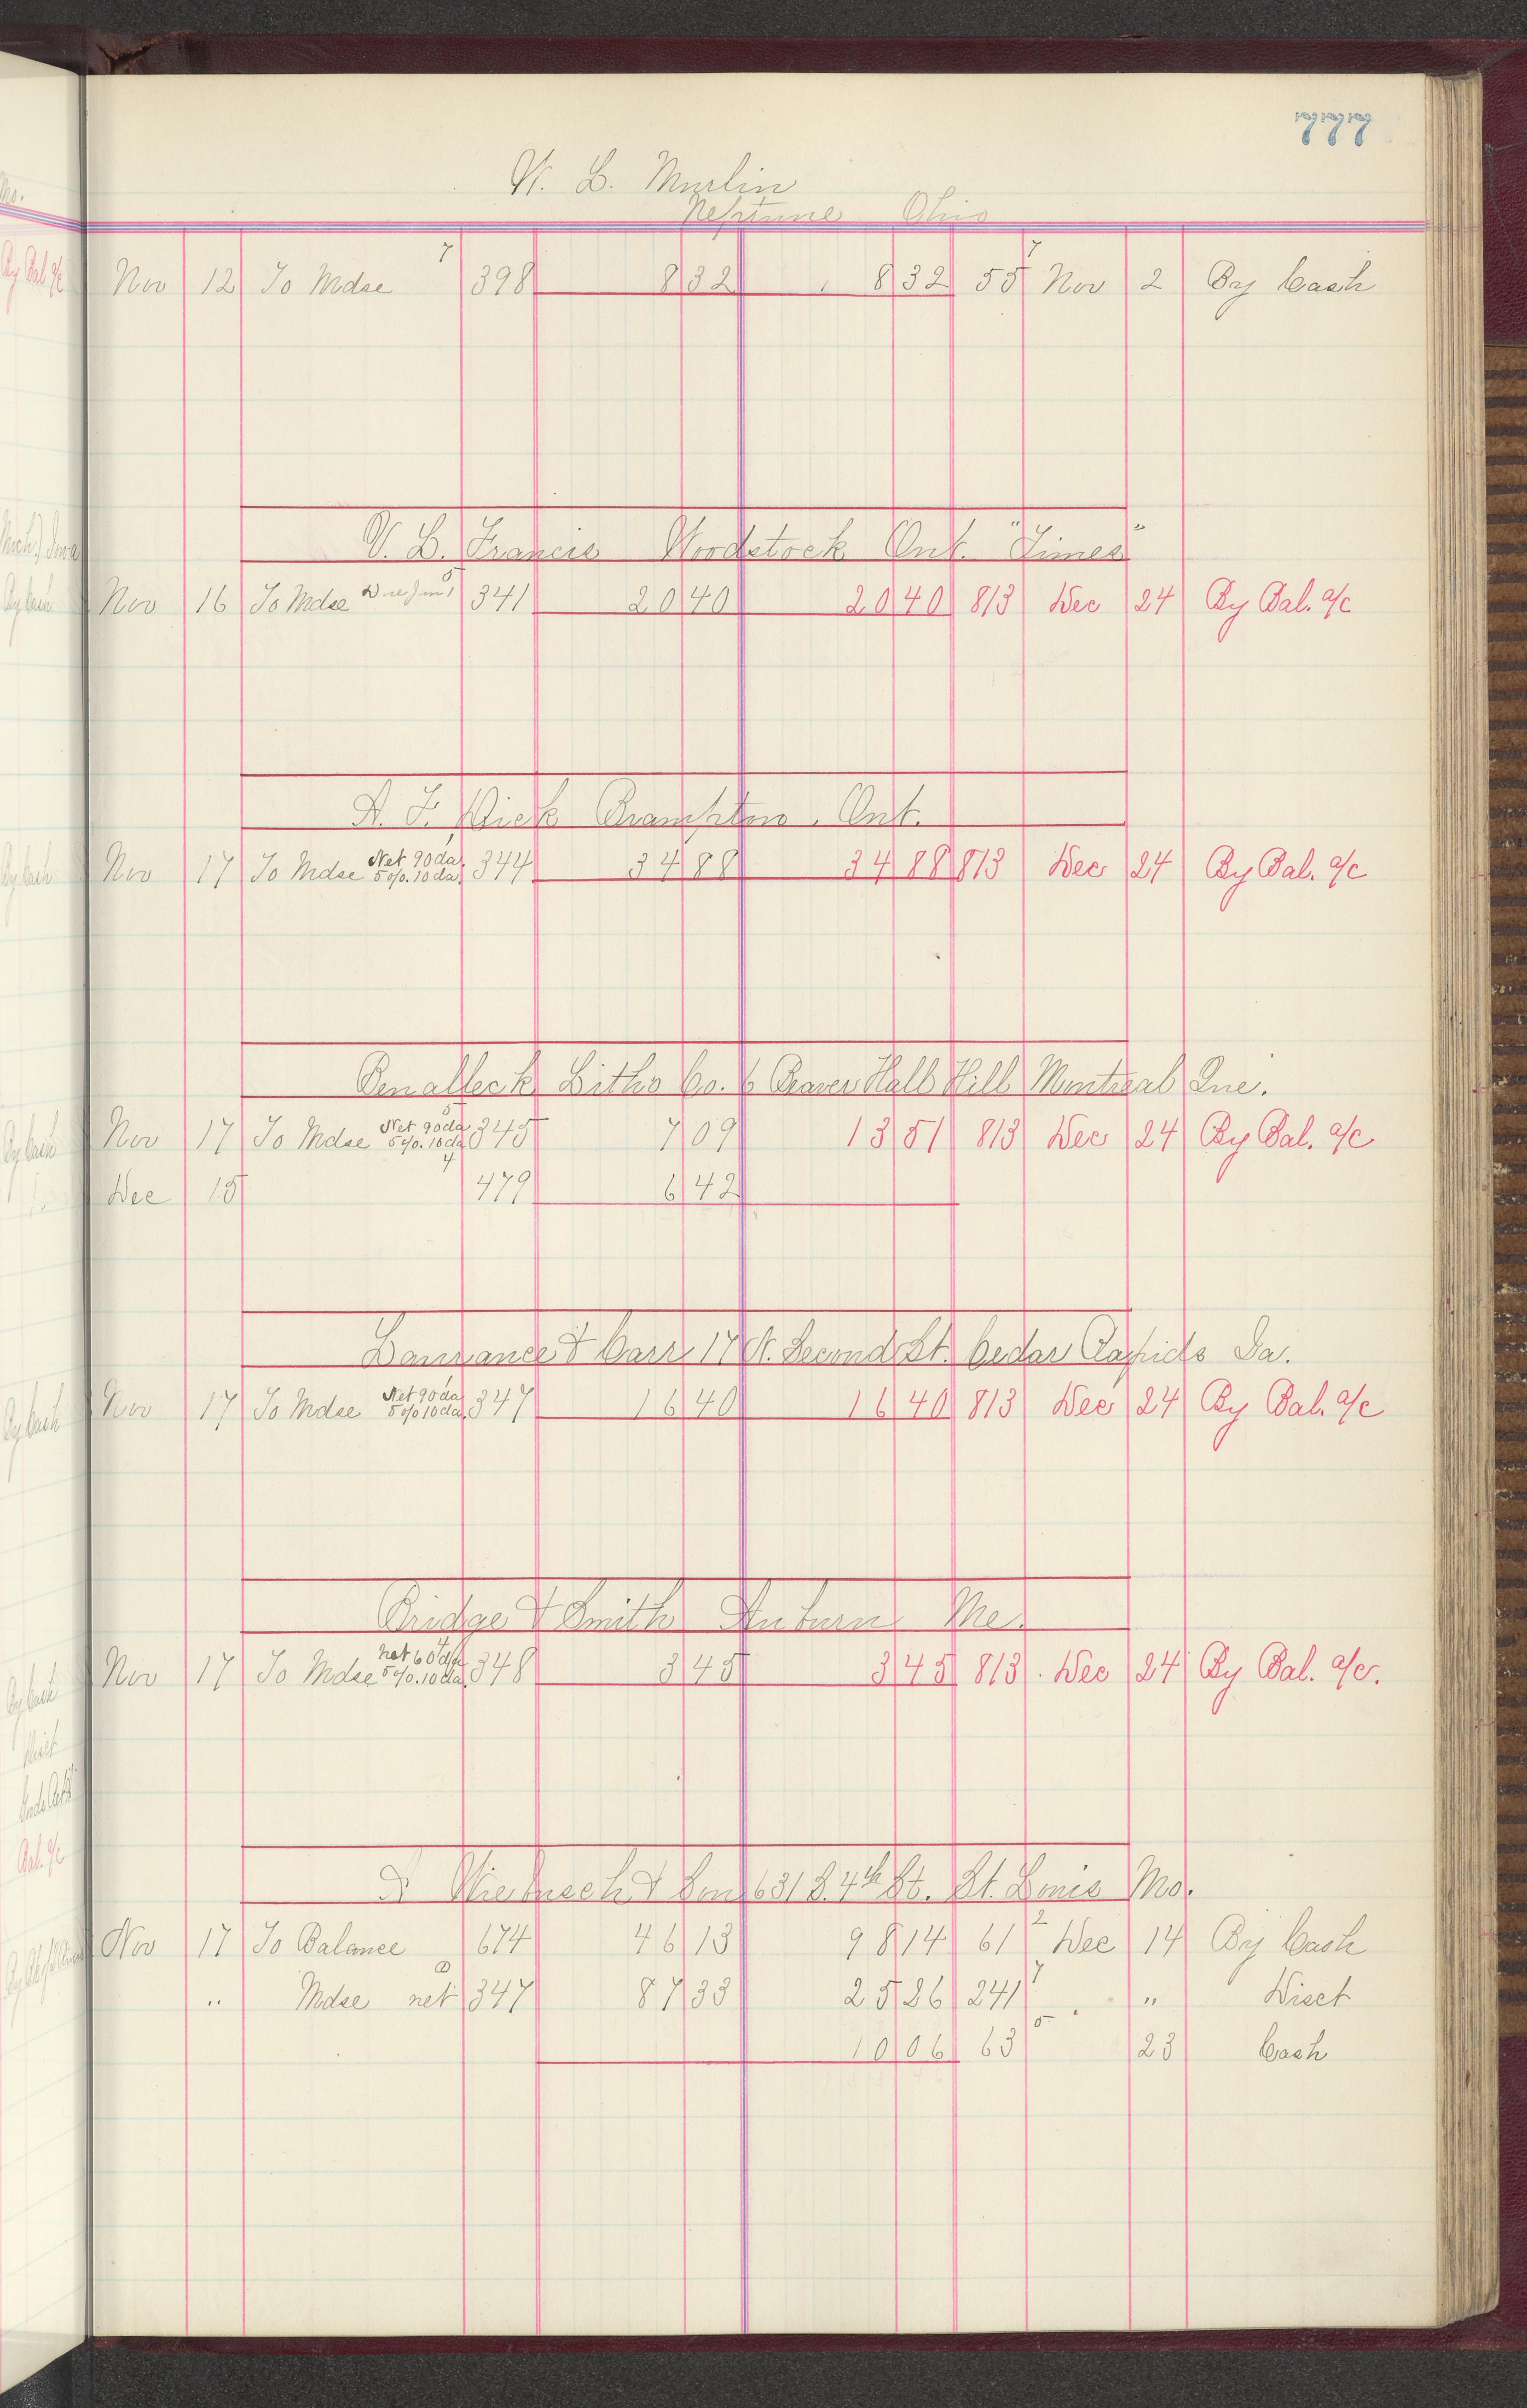 777
W. L. Murlin
Neptune Ohio
7 7
Nov 12 To Mdse 398 8 32 8 32 55 Nov 2 By Cash
V. L. Francis Woodstock Ont. "Times"
5
Nov 16 To Mdse 341 20 40 20 40 813 Dec 24 By Bal. a/c
A. F. Dick Brampton, Ont.
Nov 17 To Mdse Net 90 da. 5%. 10 da. 344 34 88 34 88 813 Dec 24 By Bal. a/c
Benalleck Litho Co. 6 Beaver Hall Hill Montreal Que.
5
Nov 17 To Mdse Net 90 da 5%. 10 da 345 7 09 13 51 813 Dec 24 By Bal. a/c
4
Dec 15 479 6 42
Laurance & Carr 17 N. Second St. Cedar Rapids Ia.
Nov 17 To Mdse Net 90 da 5% 10 da. 347 16 40 16 40 813 Dec 24 By Bal. a/c
Bridge & Smith Auburn Me.
Nov 17 To Mdse net 60 da 5%. 10 da. 348 3 45 3 45 813 Dec 24 By Bal. a/c.
& Son 631 S. 4th St. St. Louis Mo.
2
Nov 17 To Balance 674 46 13 98 14 61 Dec 14 By Cash
7
" Mdse net 347 87 33 25 26 241 " Disct
5
10 06 63 23 Cash